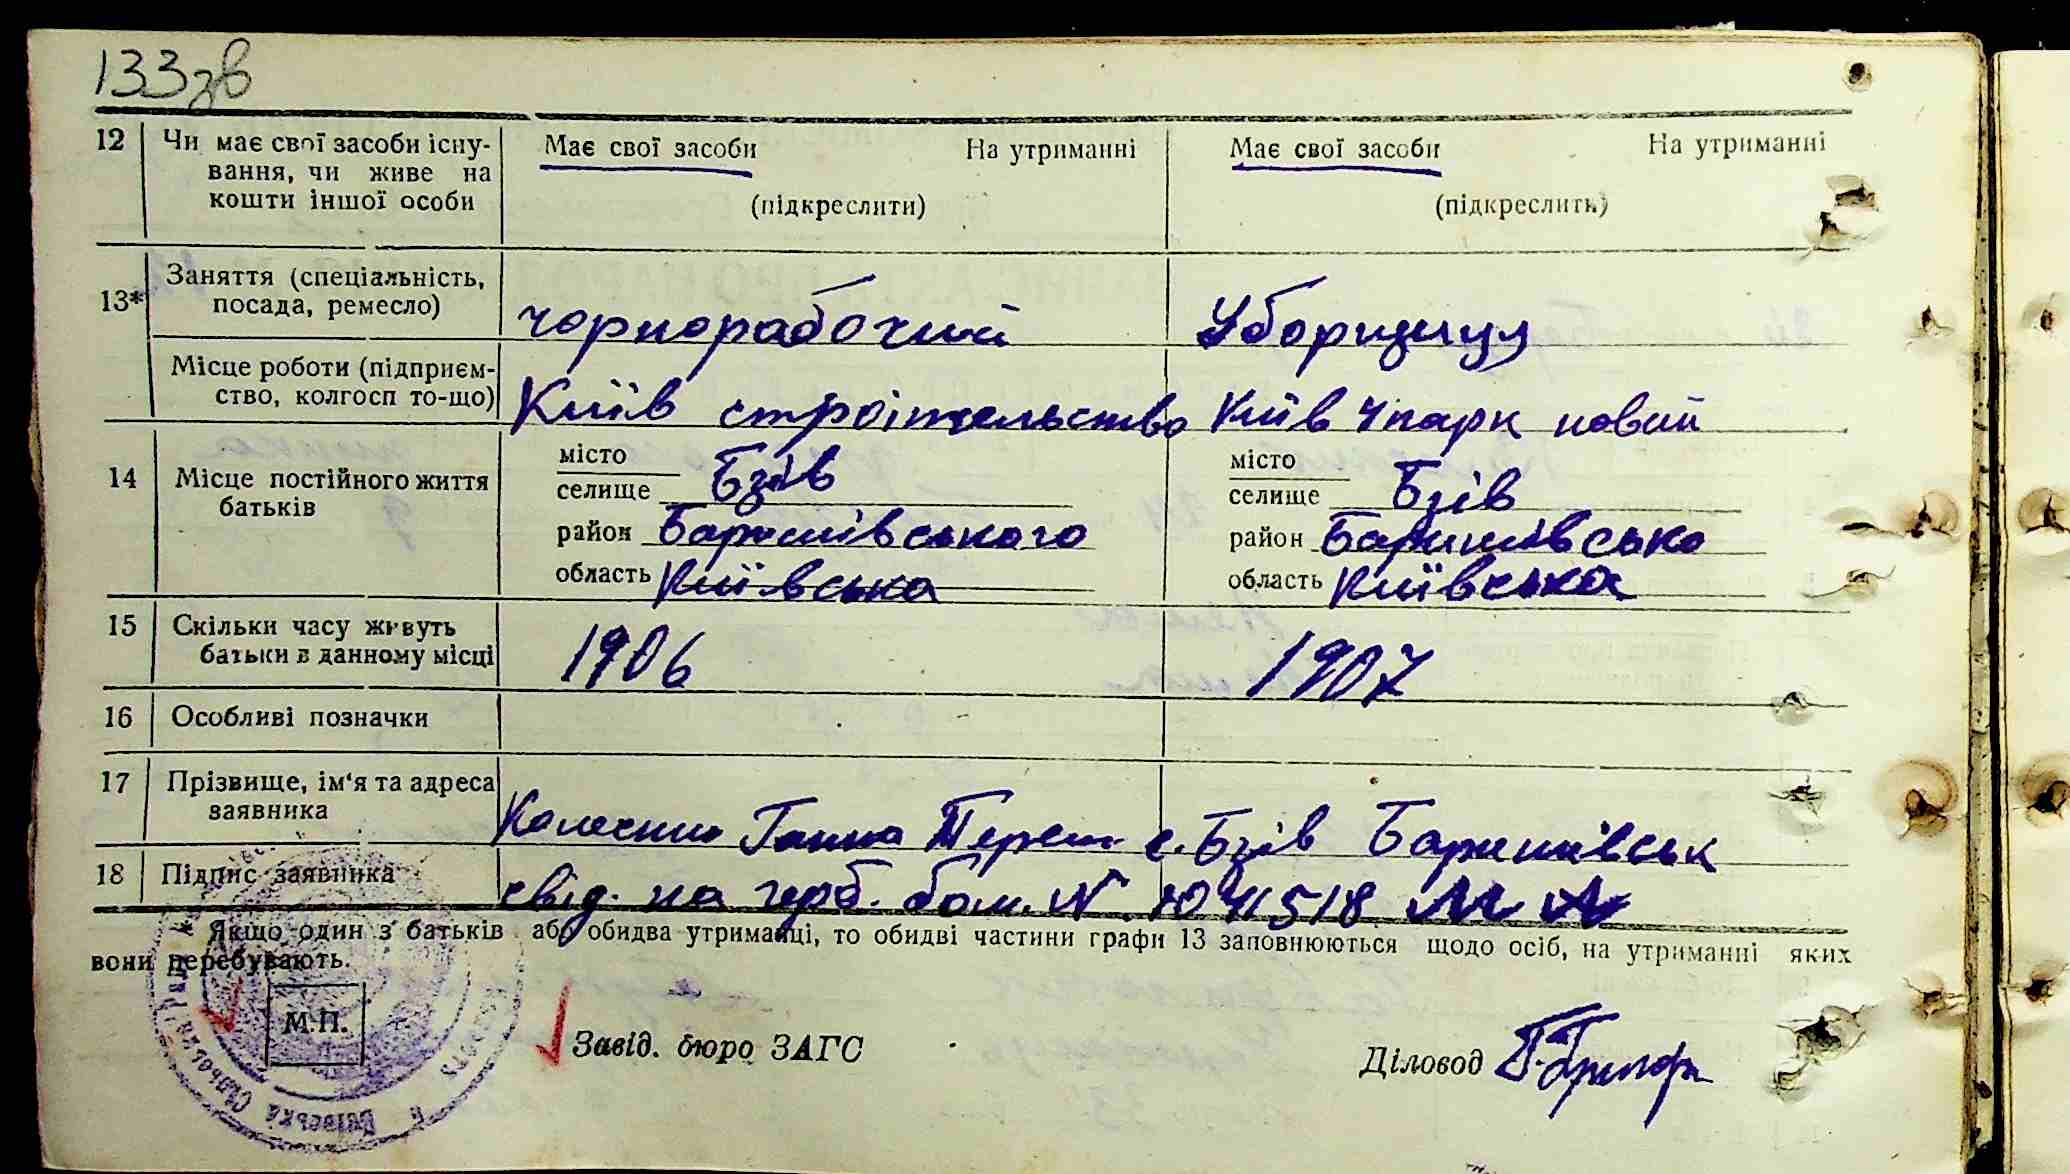 133зв
12 Чи має свої засоби існу- Має свої засоби На утриманні Має свої засоби На утриманні
вання, чи живе на
кошти іншої особи (підкреслити) (підкреслить)
13* Заняття (спеціальність,
посада, ремесло) чорнорабочий Уборщиця
Місце роботи (підприєм-
ство, колгосп то-що) Київ строітельство Київ парк новий
14 Місце постійного життя
батьків
місто місто
селище Бзів селище Бзів
район Баришівського район Баришівсько
область Київська область Київська
15 Скільки часу живуть
батьки в данному місці 1906 1907
16 Особливі позначки
17 Прізвище, ім'я та адреса
заявника Колесник Ганна Терен. с. Бзів Баришівськ
18 Підпис заявника свід. на герб. бом. N
* Якщо один з батьків або обидва утриманці, то обидві частини графи 13 заповнюються щодо осіб, на утриманні яких
вони перебувають.
М.П.
Завід. бюро ЗАГС Діловод